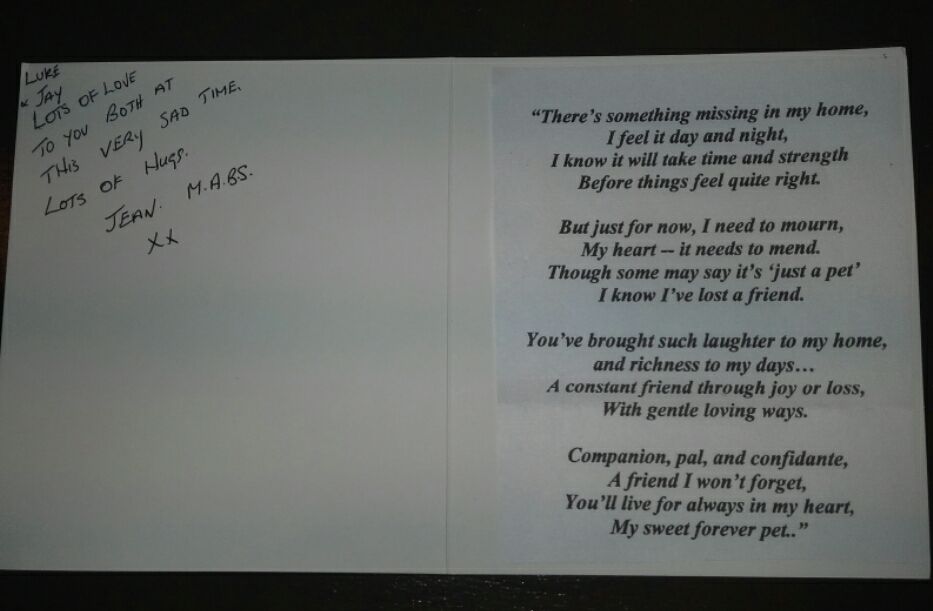 LUKE
& JAY
LOTS OF LOVE
TO YOU BOTH AT
THIS VERY SAD TIME.
LOTS OF HUGS.
JEAN. M.A.BS.
XX
“There’s something missing in my home,
I feel it day and night,
I know it will take time and strength
Before things feel quite right.
But just for now, I need to mourn,
My heart -- it needs to mend.
Though some may say it’s ‘just a pet’
I know I’ve lost a friend.
You’ve brought such laughter to my home,
and richness to my days…
A constant friend through joy or loss,
With gentle loving ways.
Companion, pal, and confidante,
A friend I won’t forget,
You’ll live for always in my heart,
My sweet forever pet..”